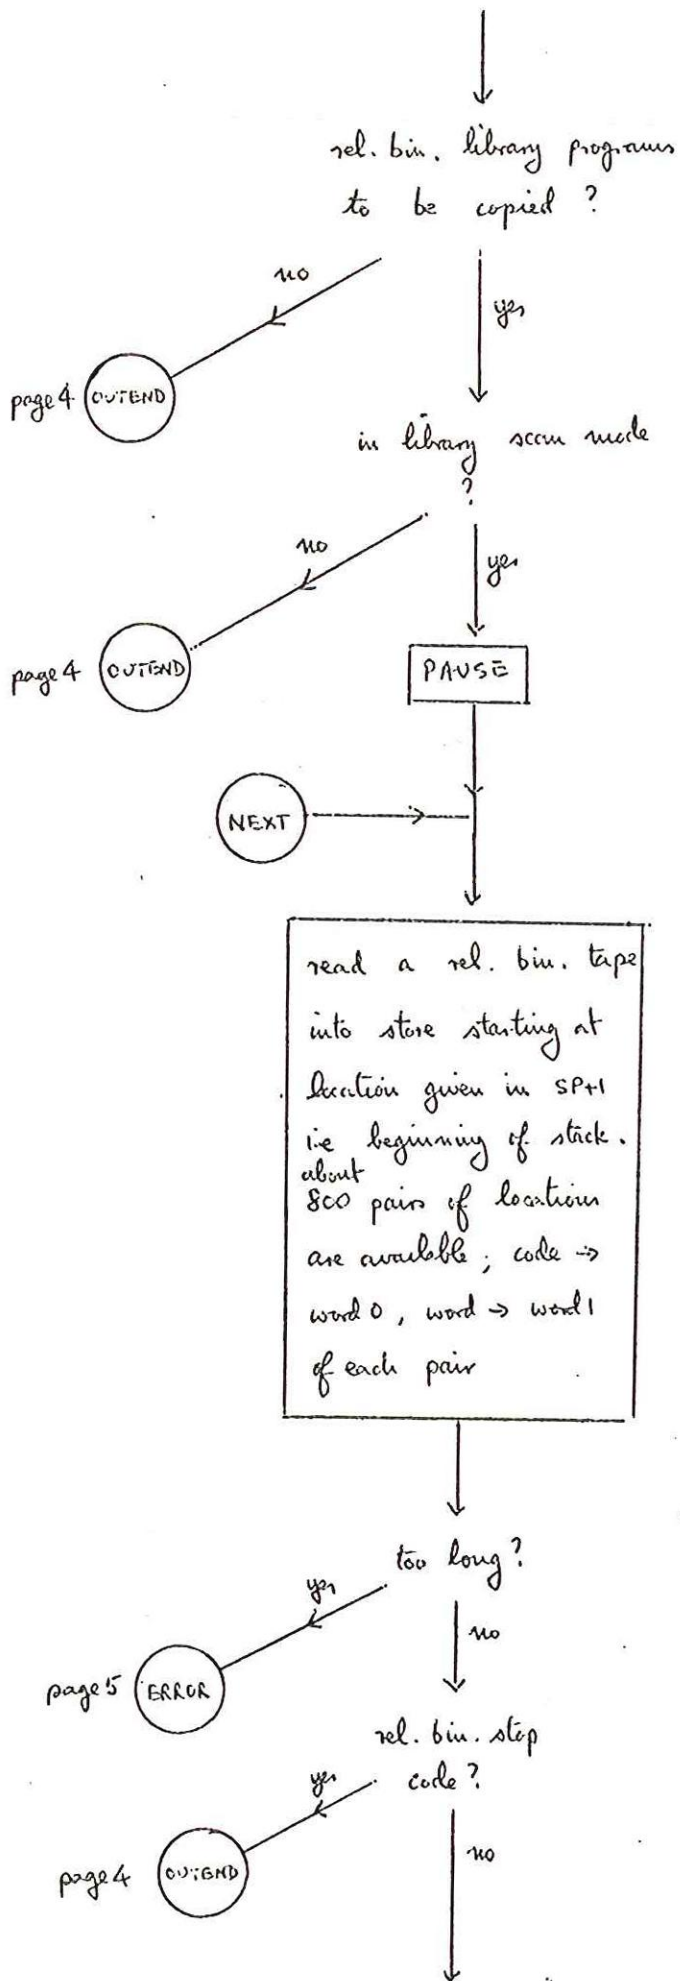 rel. bin. library programs
to be copied ?
no
yes
page 4 OUTEND
in library scan mode
?
no
yes
page 4 OUTEND
PAUSE
NEXT
read a rel. bin. tape
into store starting at
location given in SP+1
i.e beginning of stack.
about
800 pairs of locations
are available ; code →
word 0 , word → word 1
of each pair
too long ?
yes
no
page 5 ERROR
rel. bin. stop
code ?
yes
no
page 4 OUTEND